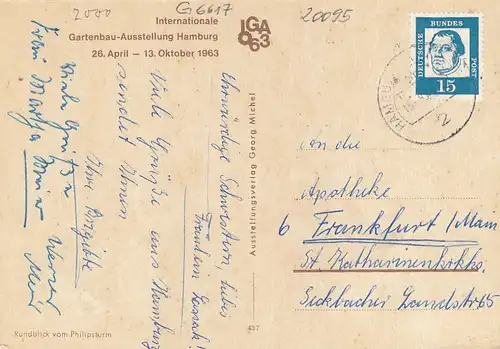 2000
G 6617
20095
Internationale
Gartenbau-Ausstellung Hamburg
26. April — 13. Oktober 1963
IGA
63
DEUTSCHE BUNDES POST
15
HAMBURG
Ehrwürdige Schwestern, liebes
Fräulein
Viele Grüße aus Hamburg
sendet Ihnen
Ihre Brigitte
Viele Grüße
Ausstellungsverlag Georg Michel
An die
Apotheke
6 Frankfurt / Main
St. Katharinenkrkhs.
Seckbacher Landstr 65
Rundblick vom Philipsturm
437